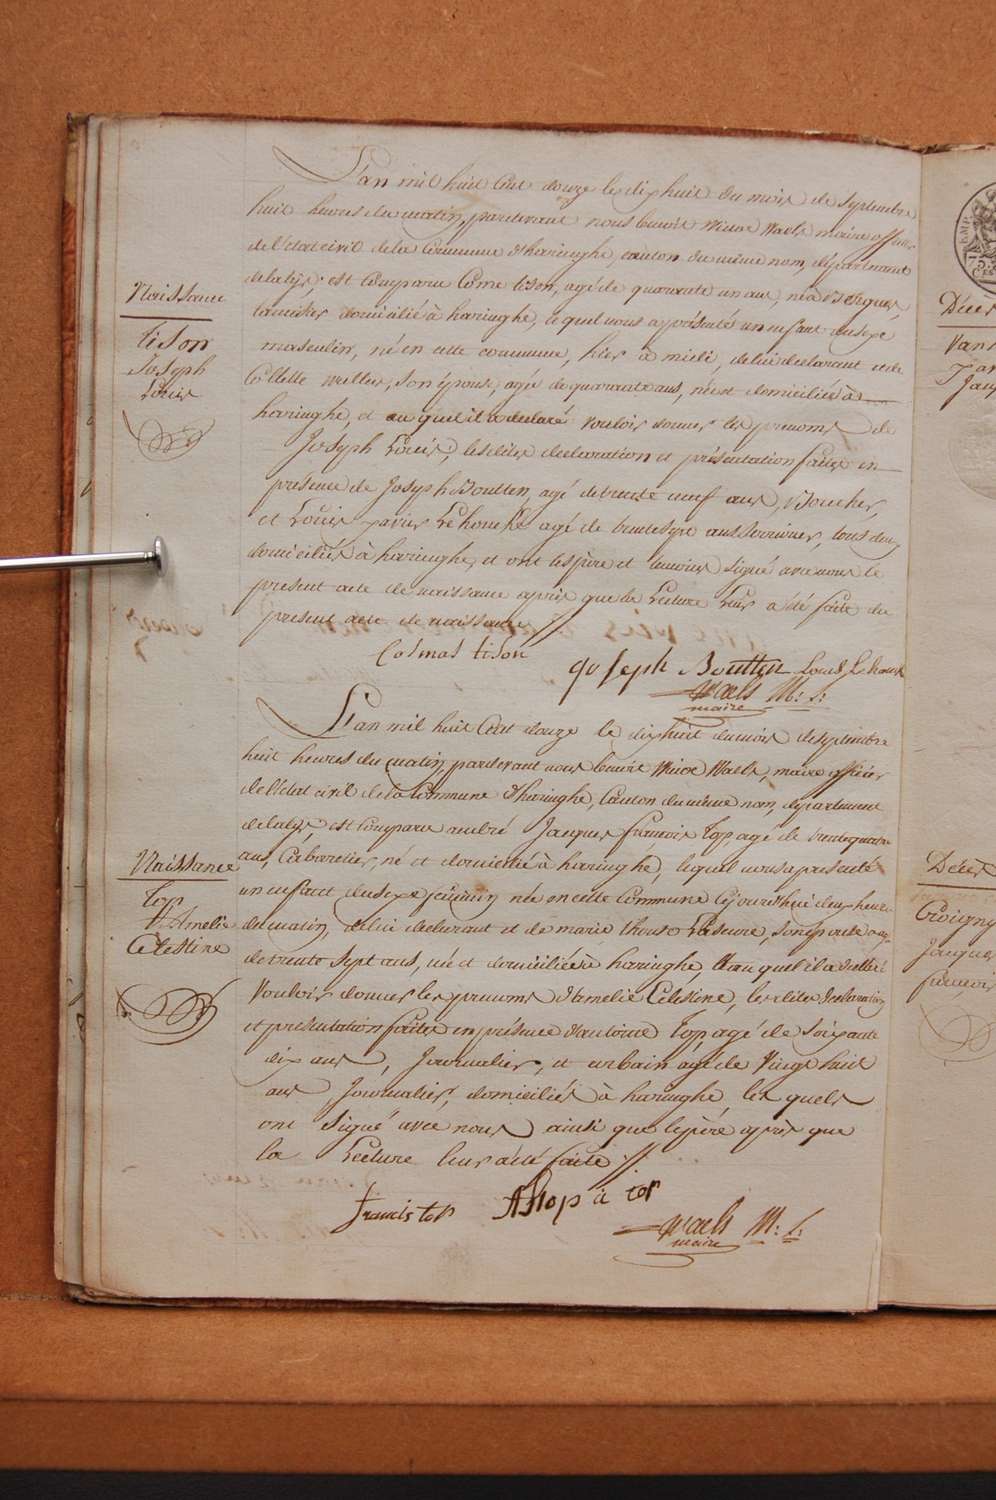 L'an mil huit Cent douze le dix huit du mois de Septembre
huit heures du matin, pardevant nous benoit Waels maire officier
de l'état civil de la Commune d'haringhe, canton du même nom, département
de la lys, est Comparu Côme tison, agé de quarante un ans, né à
domicilié à haringhe, le quel nous a présenté un enfant du sexe
masculin, né en cette commune, hier à midi, de lui declarant et de
Collette son épouse, agé de quarante ans, née et domiciliée à
haringhe, et au quel il a declaré vouloir donner les prenoms de
Joseph Louis, les dites declaration et présentation faites en
presence de Joseph Boutten, agé de trente neuf ans, Boucher,
et Louis xavier Lehoucke agé de trente sept ans Serrurier, tous deux
domiciliés à haringhe, et ont les père et temoins signé avec nous le
present acte de naissance après que la Lecture Leur a été faite du
present acte de naissance
Cosmas tison
Joseph Boutten Louis
Waels M: f:
maire
Naissance
tison
Joseph
Louis
L'an mil huit Cent douze le dix huit du mois de septembre
huit heures du matin, pardevant nous benoit Waels, maire officier
de l'état civil de la Commune d'haringhe, Canton du même nom, département
de la lys, est Comparu andré Jacques françois Top, agé de trente quatre
ans, Cabaretier, né et domicilié à haringhe, lequel nous a presenté
un enfant du sexe féminin née en cette Commune cejourd'hui deux heures
du matin, de lui declarant et de marie son épouse agé
de trente Sept ans, née et domiciliée à haringhe et au quel il a declaré
Vouloir donner les prenoms d'Amelie Celestine, les dites declaration
et présentation faites en présence d'antoine Top, agé de soixante
dix ans, Journalier, et urbain agé de Vingt huit
ans Journalier, domiciliés à haringhe les quels
ont signé avec nous ainsi que le père après que
la Lecture leur a été faite
francis top A F top a top
Waels M: f:
maire
Naissance
Top
Amelie
Celestine
Vans
Décès
Jacques
françois